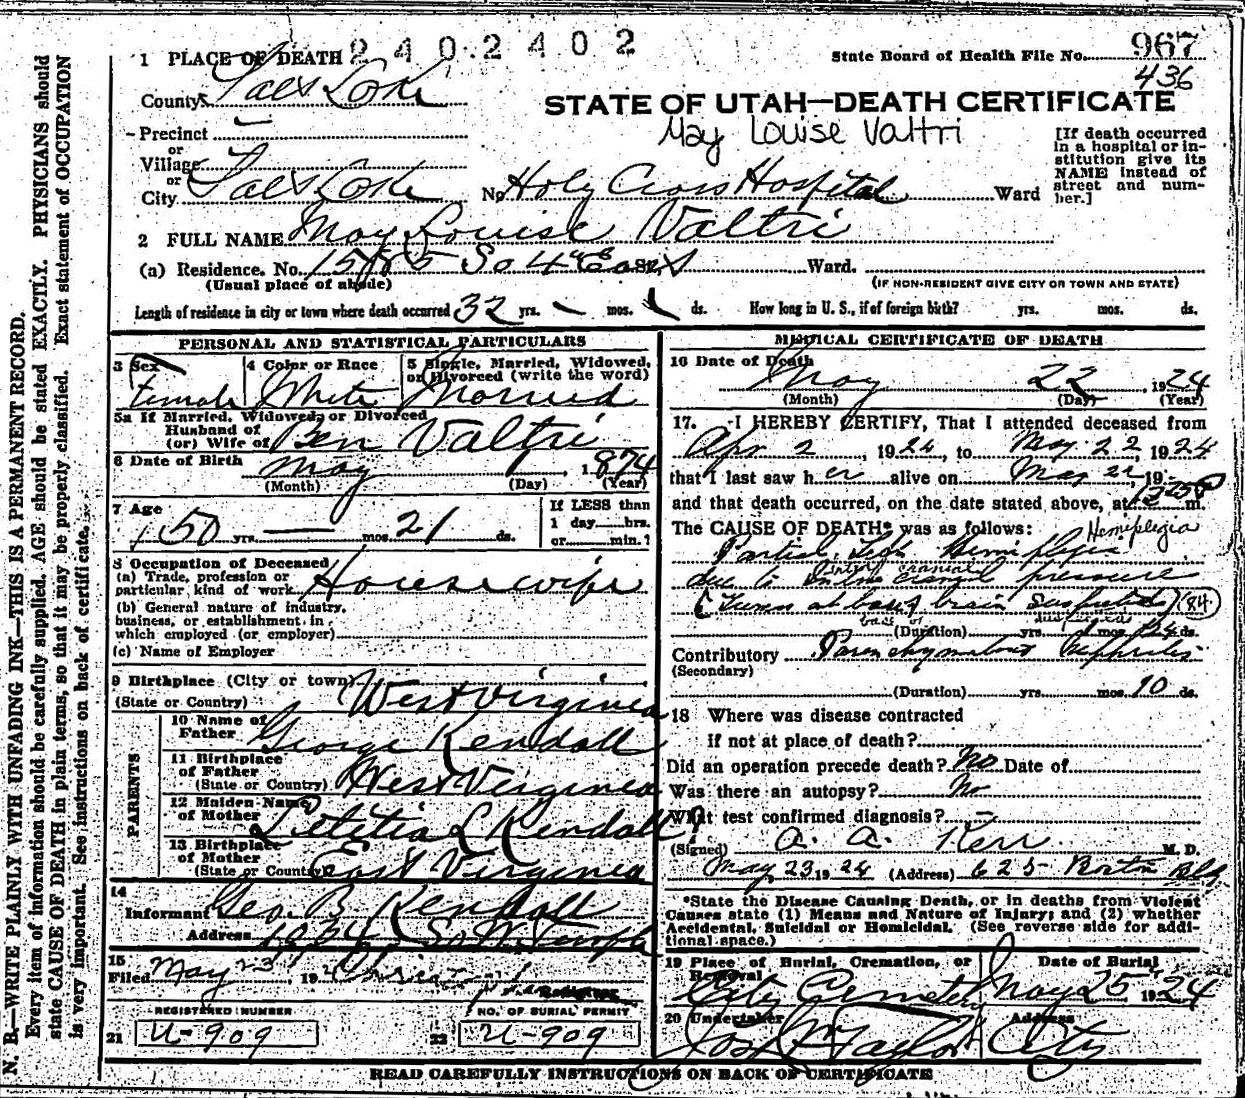 2402402
1 PLACE OF DEATH
State Board of Health File No. 967
436
County Salt Lake
STATE OF UTAH—DEATH CERTIFICATE
May Louise Valtri
Precinct
or
Village
or
City Salt Lake No Holy Cross Hospital Ward
[If death occurred in a hospital or institution give its NAME instead of street and number.]
2 FULL NAME May Louise Valtri
(a) Residence. No. So 4th East Ward.
(Usual place of abode) (IF NON-RESIDENT GIVE CITY OR TOWN AND STATE)
Length of residence in city or town where death occurred 32 yrs. – mos. ds. How long in U. S., if of foreign birth? yrs. mos. ds.
PERSONAL AND STATISTICAL PARTICULARS
3 Sex 4 Color or Race 5 Single, Married, Widowed, or Divorced (write the word)
Female White Married
5a If Married, Widowed, or Divorced
Husband of
(or) Wife of Ben Valtri
6 Date of Birth May 1, 1874
(Month) (Day) (Year)
7 Age If LESS than
50 yrs. — mos. 21 ds. 1 day hrs.
or min.?
8 Occupation of Deceased
(a) Trade, profession or
particular kind of work Housewife
(b) General nature of industry,
business, or establishment in
which employed (or employer)
(c) Name of Employer
9 Birthplace (City or town)
(State or Country) West Virginia
PARENTS
10 Name of
Father George Kendall
11 Birthplace
of Father
(State or Country) West Virginia
12 Maiden Name
of Mother Letitia L Kendall ?
13 Birthplace
of Mother
(State or Country) East Virginia
14
Informant Geo. B Kendall
Address So W. Temple
15
Filed May 23, 192
Registrar
REGISTERED NUMBER NO. OF BURIAL PERMIT
21 U-909 22 U-909
MEDICAL CERTIFICATE OF DEATH
16 Date of Death
May 22, 1924
(Month) (Day) (Year)
17. I HEREBY CERTIFY, That I attended deceased from
Apr 2, 1924, to May 22, 1924
that I last saw her alive on May 22, 19
and that death occurred, on the date stated above, at m.
The CAUSE OF DEATH* was as follows: Hemiplegia
Partial Hemiplegia
due to intra cranial pressure
(Tumor at base of brain suspected) (84)
base of
(Duration) yrs. mos. ds.
Contributory Parenchymatous Nephritis
(Secondary)
(Duration) yrs. mos. 10 ds.
18 Where was disease contracted
if not at place of death?
Did an operation precede death? No Date of
Was there an autopsy? No
What test confirmed diagnosis? –
(Signed) A. A. Kerr M. D.
May 23 1924 (Address) 625 Boston Blg
*State the Disease Causing Death, or in deaths from Violent Causes state (1) Means and Nature of Injury; and (2) whether Accidental, Suicidal or Homicidal. (See reverse side for additional space.)
19 Place of Burial, Cremation, or Removal Date of Burial
City Cemetery May 25 1924
20 Undertaker Address
Jos Wm Taylor City
READ CAREFULLY INSTRUCTIONS ON BACK OF CERTIFICATE
N. B.—WRITE PLAINLY WITH UNFADING INK—THIS IS A PERMANENT RECORD.
Every item of information should be carefully supplied. AGE should be stated EXACTLY. PHYSICIANS should
state CAUSE OF DEATH in plain terms, so that it may be properly classified. Exact statement of OCCUPATION
is very important. See instructions on back of certificate.